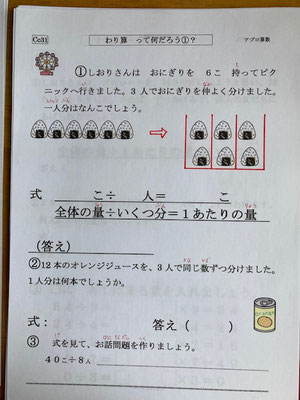 Cc31
わり算 って何だろう①?
アプロ算数
①しおりさんは おにぎりを 6こ 持ってピク
ニックへ行きました。3人でおにぎりを仲よく分けました。
一人分はなんこでしょう。
式 こ÷ 人= こ
全体の量÷いくつ分=1あたりの量
(答え)
②12本のオレンジジュースを、3人で同じ数ずつ分けました。
1人分は何本でしょうか。
式: 答え( )
③ 式を見て、お話問題を作りましょう。
40こ÷8人